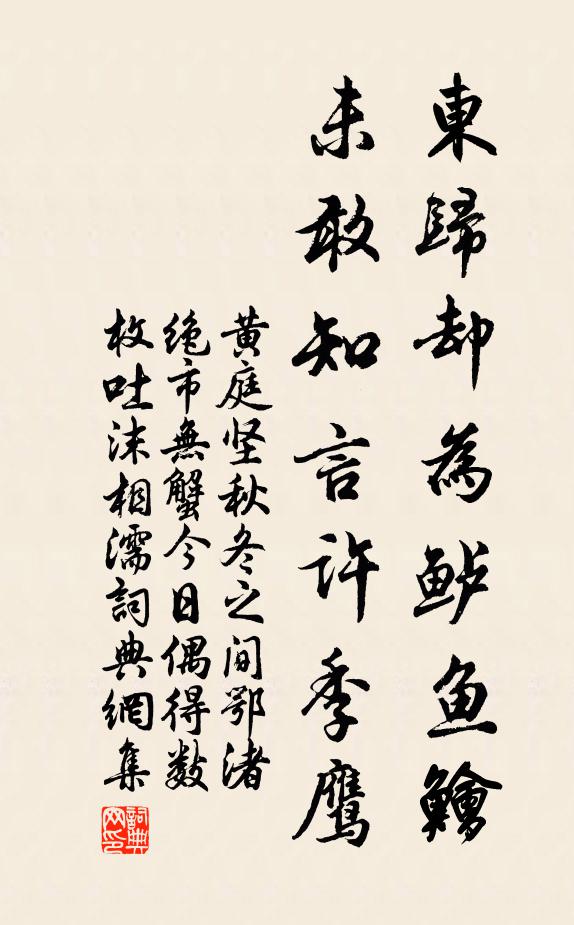 東歸却為鲈鱼鱠
未敢知言許季鷹
黄庭坚秋冬之间鄂渚
绝市無蟹今日偶得数
枚吐沫相濡詞典網集
詞典网印